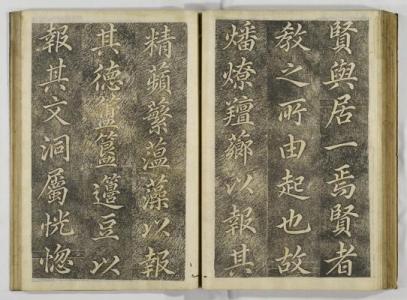 賢與居一焉賢者
教之所由起也故
燔燎羶薌以報其
精蘋蘩薀藻以報
其德簠簋籩豆以
報其文洞屬恍惚